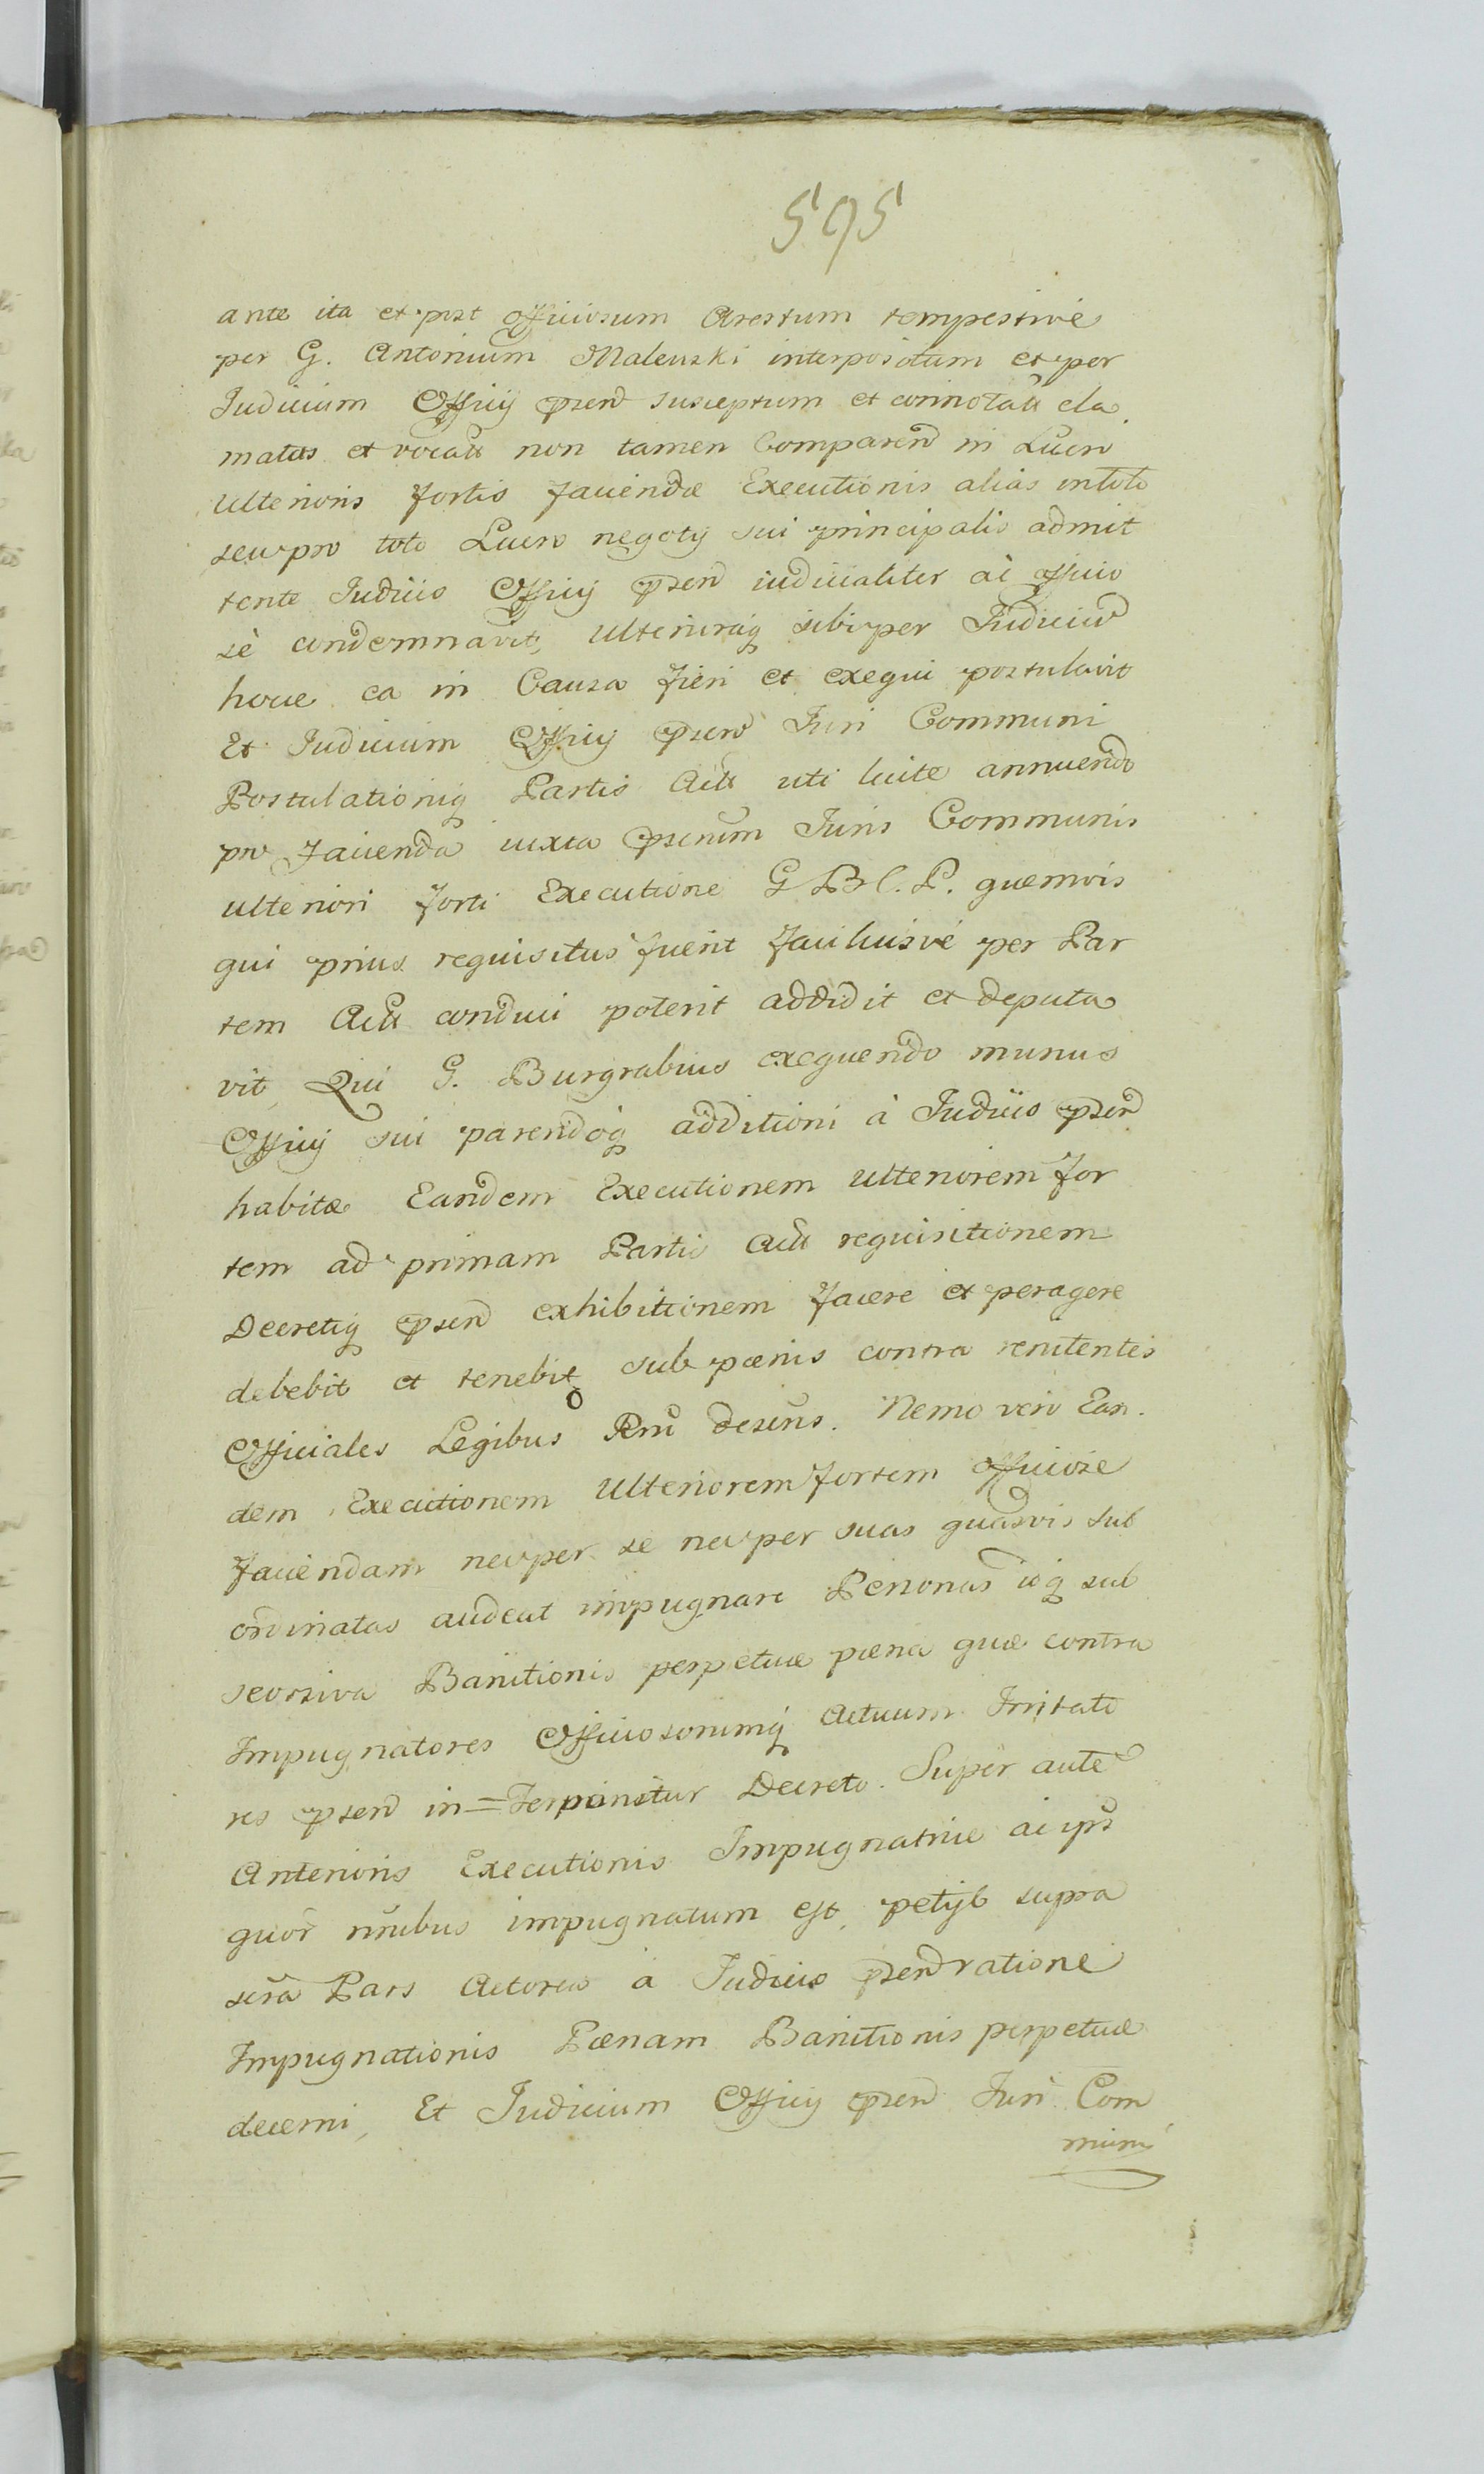 595
ante ita et post officiosum Arestum tempestivè
per G. Antonium Malewski interpositum et per
Judicium Officij psend susceptum et connotatu cla
matus et vocatu non tamen Comparend in Lucro
Ulterioris fortis faciendæ Executionis alias in toto
seu pro toto Lucro negotij sui principalis admit
tente Judicio Officij psend iudicialiter ac officio
sè condemnavit, Ulterioraq sibi per Judiciu
hocce ea in Causa fieri et exequi postulavit
Et Judicium Officij psend Juri Communi
Postulationiq Partis Actu uti licite annuendo
pro facienda iuxta pscrum Juris Communis
ulteriori forti Executione G. B. C. P. quemvis
qui prius requisitus fuerit faciliusvè per Par
tem Actu conduci poterit addidit et deputa
vit, Qui G. Burgrabius exequendo munus
Officij sui parendoq additioni à Judicio psend
habitæ Eandem Executionem ulteriorem for
tem ad primam Partis Actu requisitionem
Decretiq psend exhibitionem facere et peragere
debebit et tenebit sub pœnis contra renitentes
Officiales Legibus Rni descris. Nemo vero Ean
dem Executionem Ulteriorem fortem officiose
faciendam nec per se nec per suas quasvis sub
ordinatas audeat impugnare Personas idq sub
seorsiva Banitionis perpetuæ pœna quæ contra
Impugnatores Officiosorumq Actuum Irritato
res psend in=terponitur Decreto. Super autē
Anterioris Executionis Impugnatrice ac ips
quor nnibus impugnatum est, petijt supra
scra Pars Actorea à Judicio psend ratione
Impugnationis Pœnam Banitionis perpetuæ
decerni, Et Judicium Officij psend Juri Com
muni